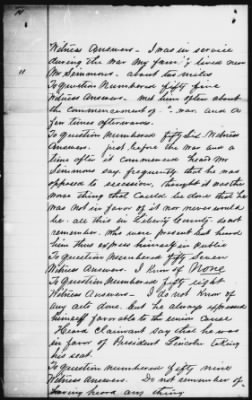 Witness Answers - I was in service
during the war my family lived near
Mr Simmons - about two miles
To question Numbered fifty five
Witness Answers - met him often about
the commencement of - war and a
few times afterwards.
To question Numbered fifty six Witness
Answers. just before the war and a
time after it commenced heard Mr
Simmons say frequently that he was
opposed to secession, thought it was the
worse thing that could be done that he
was not in favor of it nor never would
be. all this in Liberty County do not
remember who were present but heard
him thus express himself in public
To question Numbered fifty seven
Witness Answers. I know of None
To question Numbered fifty eight
Witness Answers - I do not know of
any acts done. but he always expressed
himself favorable to the union cause
Heard Claimant say that he was
in favor of President Lincoln taking
his seat.
To question numbered fifty nine
Witness Answers. Do not remember of
having heard any thing